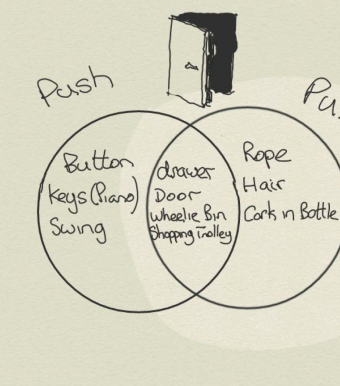 Push
Button
Keys (Piano)
Swing
drawer
Door
Wheelie Bin
Shopping Trolley
Rope
Hair
Cork in Bottle